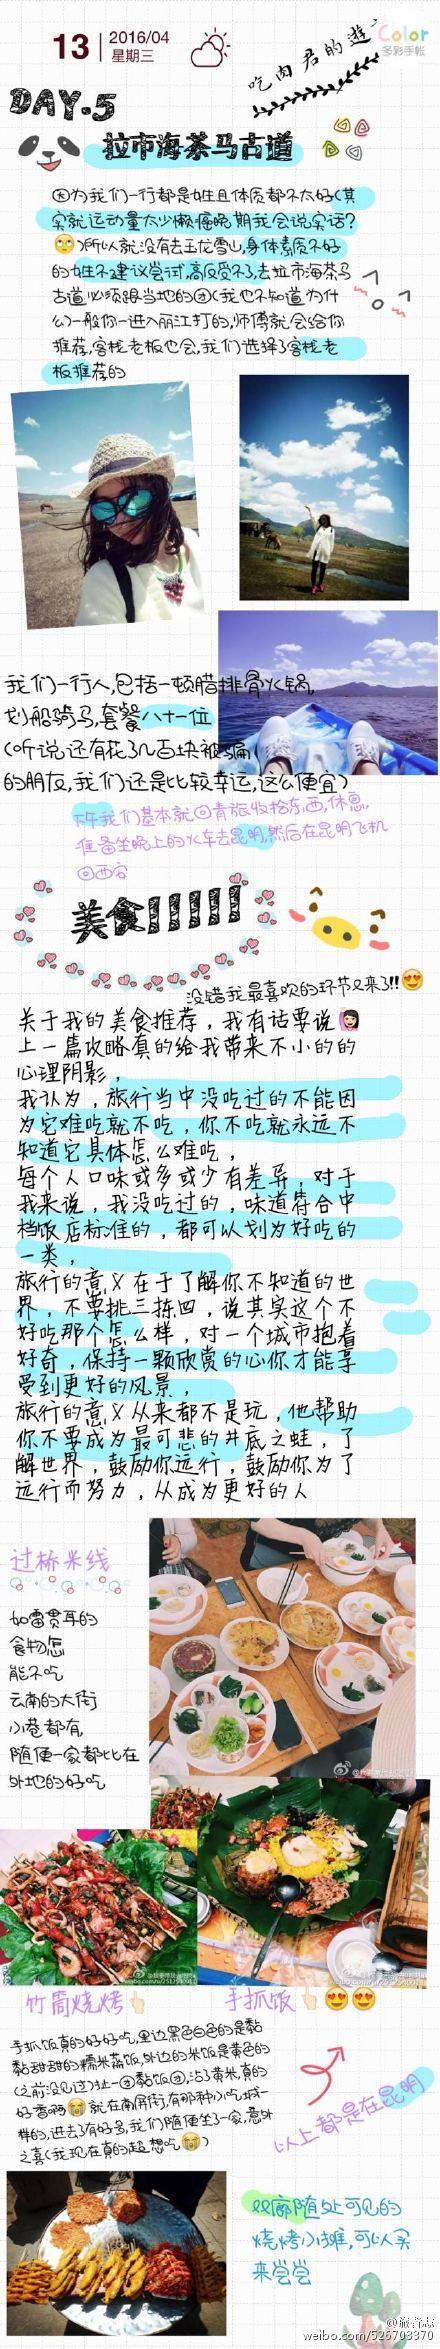 13
2016/04
星期三
Color
多彩手帐
吃肉君的游
DAY.5
拉市海茶马古道
因为我们一行都是女生且体质都不太好(其
实就运动量太少懒癌晚期我会说实话?
)所以就没有去玉龙雪山,身体素质不好
的女生不建议尝试,高反受不了,去拉市海茶马
古道必须跟当地的团(我也不知道为什
么)一般你一进入丽江打的,师傅就会给你
推荐,客栈老板也会,我们选择了客栈老
板推荐的
我们一行人,包括一顿腊排骨火锅,
划船骑马,套餐八十一位
(听说还有花了几百块被骗
的朋友,我们还是比较幸运,这么便宜)
下午我们基本就回青旅收拾东西,休息,
准备坐晚上的火车去昆明,然后在昆明飞机
回西安
美食!!!!!
没错我最喜欢的环节又来了!!
关于我的美食推荐，我有话要说
上一篇攻略真的给我带来不小的的
心理阴影，
我认为，旅行当中没吃过的不能因
为它难吃就不吃，你不吃就永远不
知道它具体怎么难吃，
每个人口味或多或少有差异，对于
我来说，我没吃过的，味道符合中
档饭店标准的，都可以划为好吃的
一类，
旅行的意义在于了解你不知道的世
界，不要挑三拣四，说其实这个不
好吃那个怎么样，对一个城市抱着
好奇，保持一颗欣赏的心你才能享
受到更好的风景，
旅行的意义从来都不是玩，他帮助
你不要成为最可悲的井底之蛙，了
解世界，鼓励你远行，鼓励你为了
远行而努力，从成为更好的人
过桥米线
如雷贯耳的
食物怎
能不吃
云南的大街
小巷都有,
随便一家都比在
外地的好吃
竹筒烧烤
手抓饭
手抓饭真的好好吃,里边黑色白色的是黏
黏甜甜的糯米蒸饭,外边的米饭是黄色的
(之前没见过)扯一团黏饭团,沾了黄米,真的
好香啊 就在南屏街,有那种小吃城一
样的,进去了有好多,我们随便坐了一家,意外
之喜(我现在真的超想吃 )
以上都是在昆明
双廊随处可见的
烧烤小摊,可以买
来尝尝
weibo.com/526703370